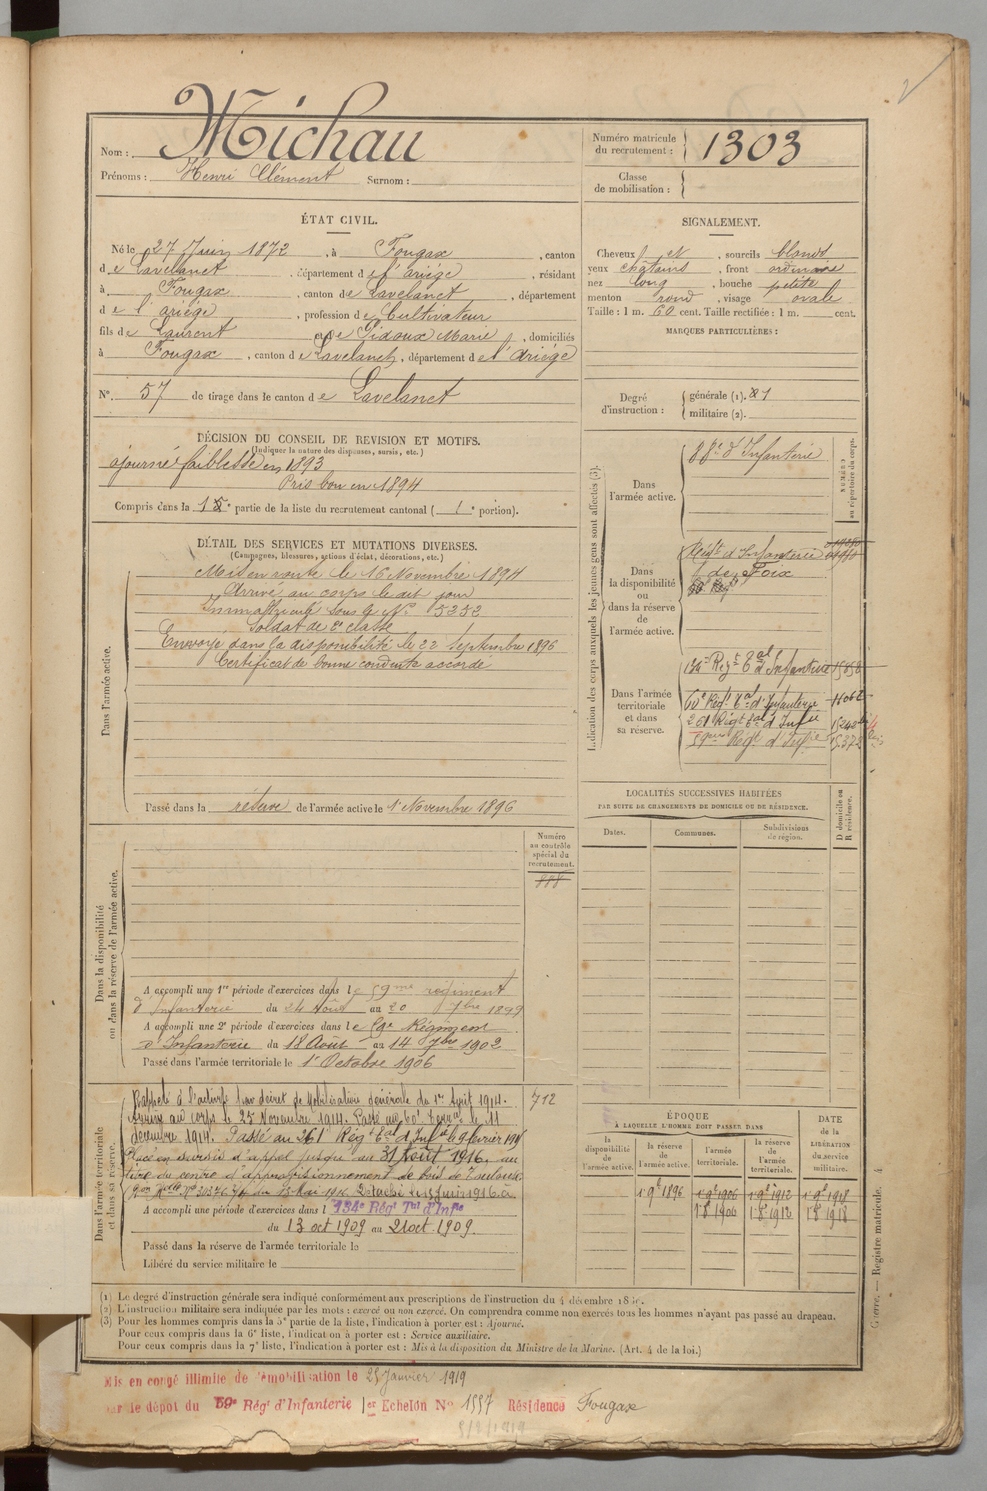 Michau
Nom :
Prénoms : Henri Clément Surnom :
Numéro matricule du recrutement : 1303
Classe de mobilisation :
ÉTAT CIVIL.
Né le 27 Juin 1872, à Fougax, canton
de Lavelanet, département de l'ariége, résidant
à Fougax, canton de Lavelanet, département
de l'ariége, profession de Cultivateur
fils de Laurent et de Pidoux Marie, domiciliés
à Fougax, canton de Lavelanet, département de l'Ariége
N° 57 de tirage dans le canton de Lavelanet
SIGNALEMENT.
Cheveux et, sourcils blonds
yeux chatains, front ordinaire
nez long, bouche petite
menton rond, visage ovale
Taille : 1 m. 60 cent. Taille rectifiée : 1 m. cent.
MARQUES PARTICULIÈRES :
Degré d'instruction : générale (1). 1
militaire (2).
DÉCISION DU CONSEIL DE REVISION ET MOTIFS.
(Indiquer la nature des dispenses, sursis, etc.)
ajourné faiblesse en 1893
Pris bon en 1894
Compris dans la 1e partie de la liste du recrutement cantonal ( 1e portion).
DÉTAIL DES SERVICES ET MUTATIONS DIVERSES.
(Campagnes, blessures, actions d'éclat, décorations, etc.)
Dans l'armée active.
Mis en route le 16 Novembre 1894
Arrivé au corps le dit jour
Immatriculé sous le N° 5252
Soldat de 2e classe
Envoyé dans la disponibilité le 22 Septembre 1896
Certificat de bonne conduite accordé
Passé dans la réserve de l'armée active le 1er Novembre 1896
Indication des corps auxquels les jeunes gens sont affectés (3).
NUMÉRO au répertoire du corps.
Dans l'armée active.
88e d'Infanterie
Dans la disponibilité ou dans la réserve de l'armée active.
Régt d'Infanterie
de Foix
Dans l'armée territoriale et dans sa réserve.
134e Régt Tal d'Infanterie 15858
60e Régt Tal d'Infanterie
261 Régt Tal d'Infie
59me Regt d'Infie 15372 bis
LOCALITÉS SUCCESSIVES HABITÉES
PAR SUITE DE CHANGEMENTS DE DOMICILE OU DE RÉSIDENCE.
Dates. Communes. Subdivisions de région. D domicile ou R résidence.
Dans la disponibilité ou dans la réserve de l'armée active.
Numéro au contrôle spécial du recrutement.
888
A accompli une 1re période d'exercices dans le 59me régiment
d'Infanterie du 24 Août au 20 7bre 1899
A accompli une 2e période d'exercices dans le 59e Régiment
d'Infanterie du 18 Août au 14 7bre 1902
Passé dans l'armée territoriale le 1er Octobre 1906
Dans l'armée territoriale et dans sa réserve.
712
Rappelé à l'activité par décret de Mobilisation Générale du 1er Août 1914.
Arrivé au corps le 25 Novembre 1914. Passé au 60e Terral le 11
décembre 1914. Passé au 261e Régt Tal d'Infie le 9 fevrier 191
Placé en sursis d'appel jusqu'au 31 Août 1916, au
titre du centre d'approvisionnement de bois de Toulouse
du 13 Mai 1916. Détaché le 15 Juin 1916
A accompli une période d'exercices dans l 134e Régt Tal d'Infie
du 13 oct 1909 au 21 oct. 1909.
Passé dans la réserve de l'armée territoriale le
Libéré du service militaire le
ÉPOQUE
À LAQUELLE L'HOMME DOIT PASSER DANS
la disponibilité de l'armée active. la réserve de l'armée active. l'armée territoriale. la réserve de l'armée territoriale. DATE de la LIBÉRATION du service militaire.
1 9e 1896 1 9e 1906 1 9e 1912 1 9e 1918
1 8e 1906 1 8e 1912 1 8e 1918
(1) Le degré d'instruction générale sera indiqué conformément aux prescriptions de l'instruction du 4 décembre 18
(2) L'instruction militaire sera indiquée par les mots : exercé ou non exercé. On comprendra comme non exercés tous les hommes n'ayant pas passé au drapeau.
(3) Pour les hommes compris dans la 5e partie de la liste, l'indication à porter est : Ajourné.
Pour ceux compris dans la 6e liste, l'indication à porter est : Service auxiliaire.
Pour ceux compris dans la 7e liste, l'indication à porter est : Mis à la disposition du Ministre de la Marine. (Art. 4 de la loi.)
Guerre. — Registre matricule. 4
Mis en congé illimité de démobilisation le 25 Janvier 1919
par le dépôt du 59e Régt d'Infanterie 1er Echelon N° 1557 Résidence Fougax